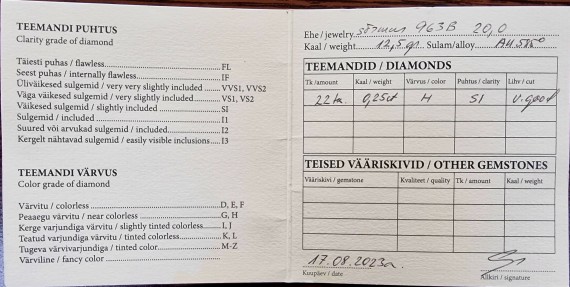 TEEMANDI PUHTUS
Clarity grade of diamond
Täiesti puhas / flawless FL
Seest puhas / internally flawless IF
Üliväikesed sulgemid / very very slightly included VVS1, VVS2
Väga väikesed sulgemid / very slightly included VS1, VS2
Väikesed sulgemid / slightly included SI
Sulgemid / included I1
Suured või arvukad sulgemid / included I2
Kergelt nähtavad sulgemid / easily visible inclusions I3
TEEMANDI VÄRVUS
Color grade of diamond
Värvitu / colorless D, E, F
Peaaegu värvitu / near colorless G, H
Kerge varjundiga värvitu / slightly tinted colorless I, J
Teatud varjundiga värvitu / tinted colorless K, L
Tugeva värvivarjundiga / tinted color M-Z
Värviline / fancy color
Ehe / jewelry sõrmus 963B 20,0
Kaal / weight 12,5 gr Sulam/alloy Au 585°
TEEMANTID / DIAMONDS
Tk /amount Kaal / weight Värvus / color Puhtus / clarity Lihv / cut
22 tk. 0,25ct H SI v.good
TEISED VÄÄRISKIVID / OTHER GEMSTONES
Vääriskivi / gemstone Kvaliteet / quality Tk / amount Kaal / weight
17.08.2023a.
Kuupäev / date Allkiri / signature